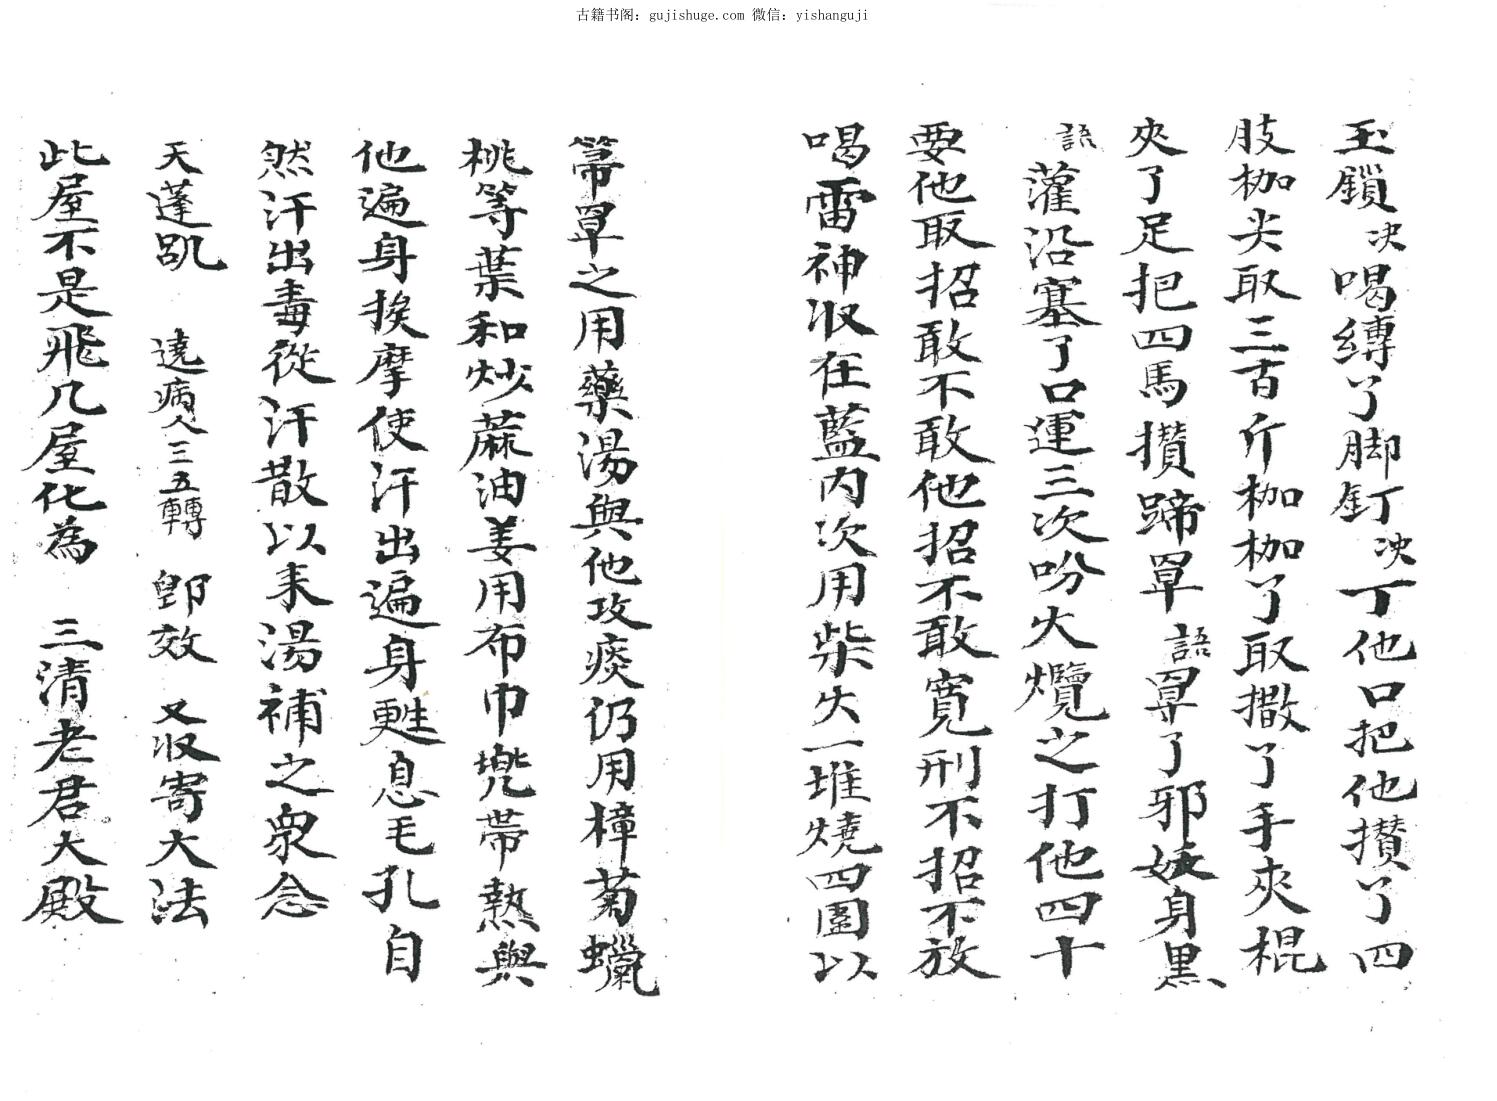 古籍书阁：gujishuge.com 微信：yishanguji
玉鎖决喝縛了脚釘决丁他口把他攅了四
肢枷尖取三百斤枷枷了取撒了手夾棍
夾了足把四馬攅蹄罩語罩了邪妖身黑
語灌沿塞了口運三次吩火爁之打他四十
要他取招敢不敢他招不敢寬刑不招不放
喝雷神收在藍内次用柴火一堆燒四圍以
箒罩之用藥湯與他攻痰仍用樟菊蠟
桃等葉和炒蔴油姜用布巾兠帶熱與
他遍身挨摩使汗出遍身甦息毛孔自
然汗出毒從汗散以来湯補之衆念
天蓬凱 遶病人三五轉 即效 又收寄大法
此屋不是飛几屋化為 三清老君大殿